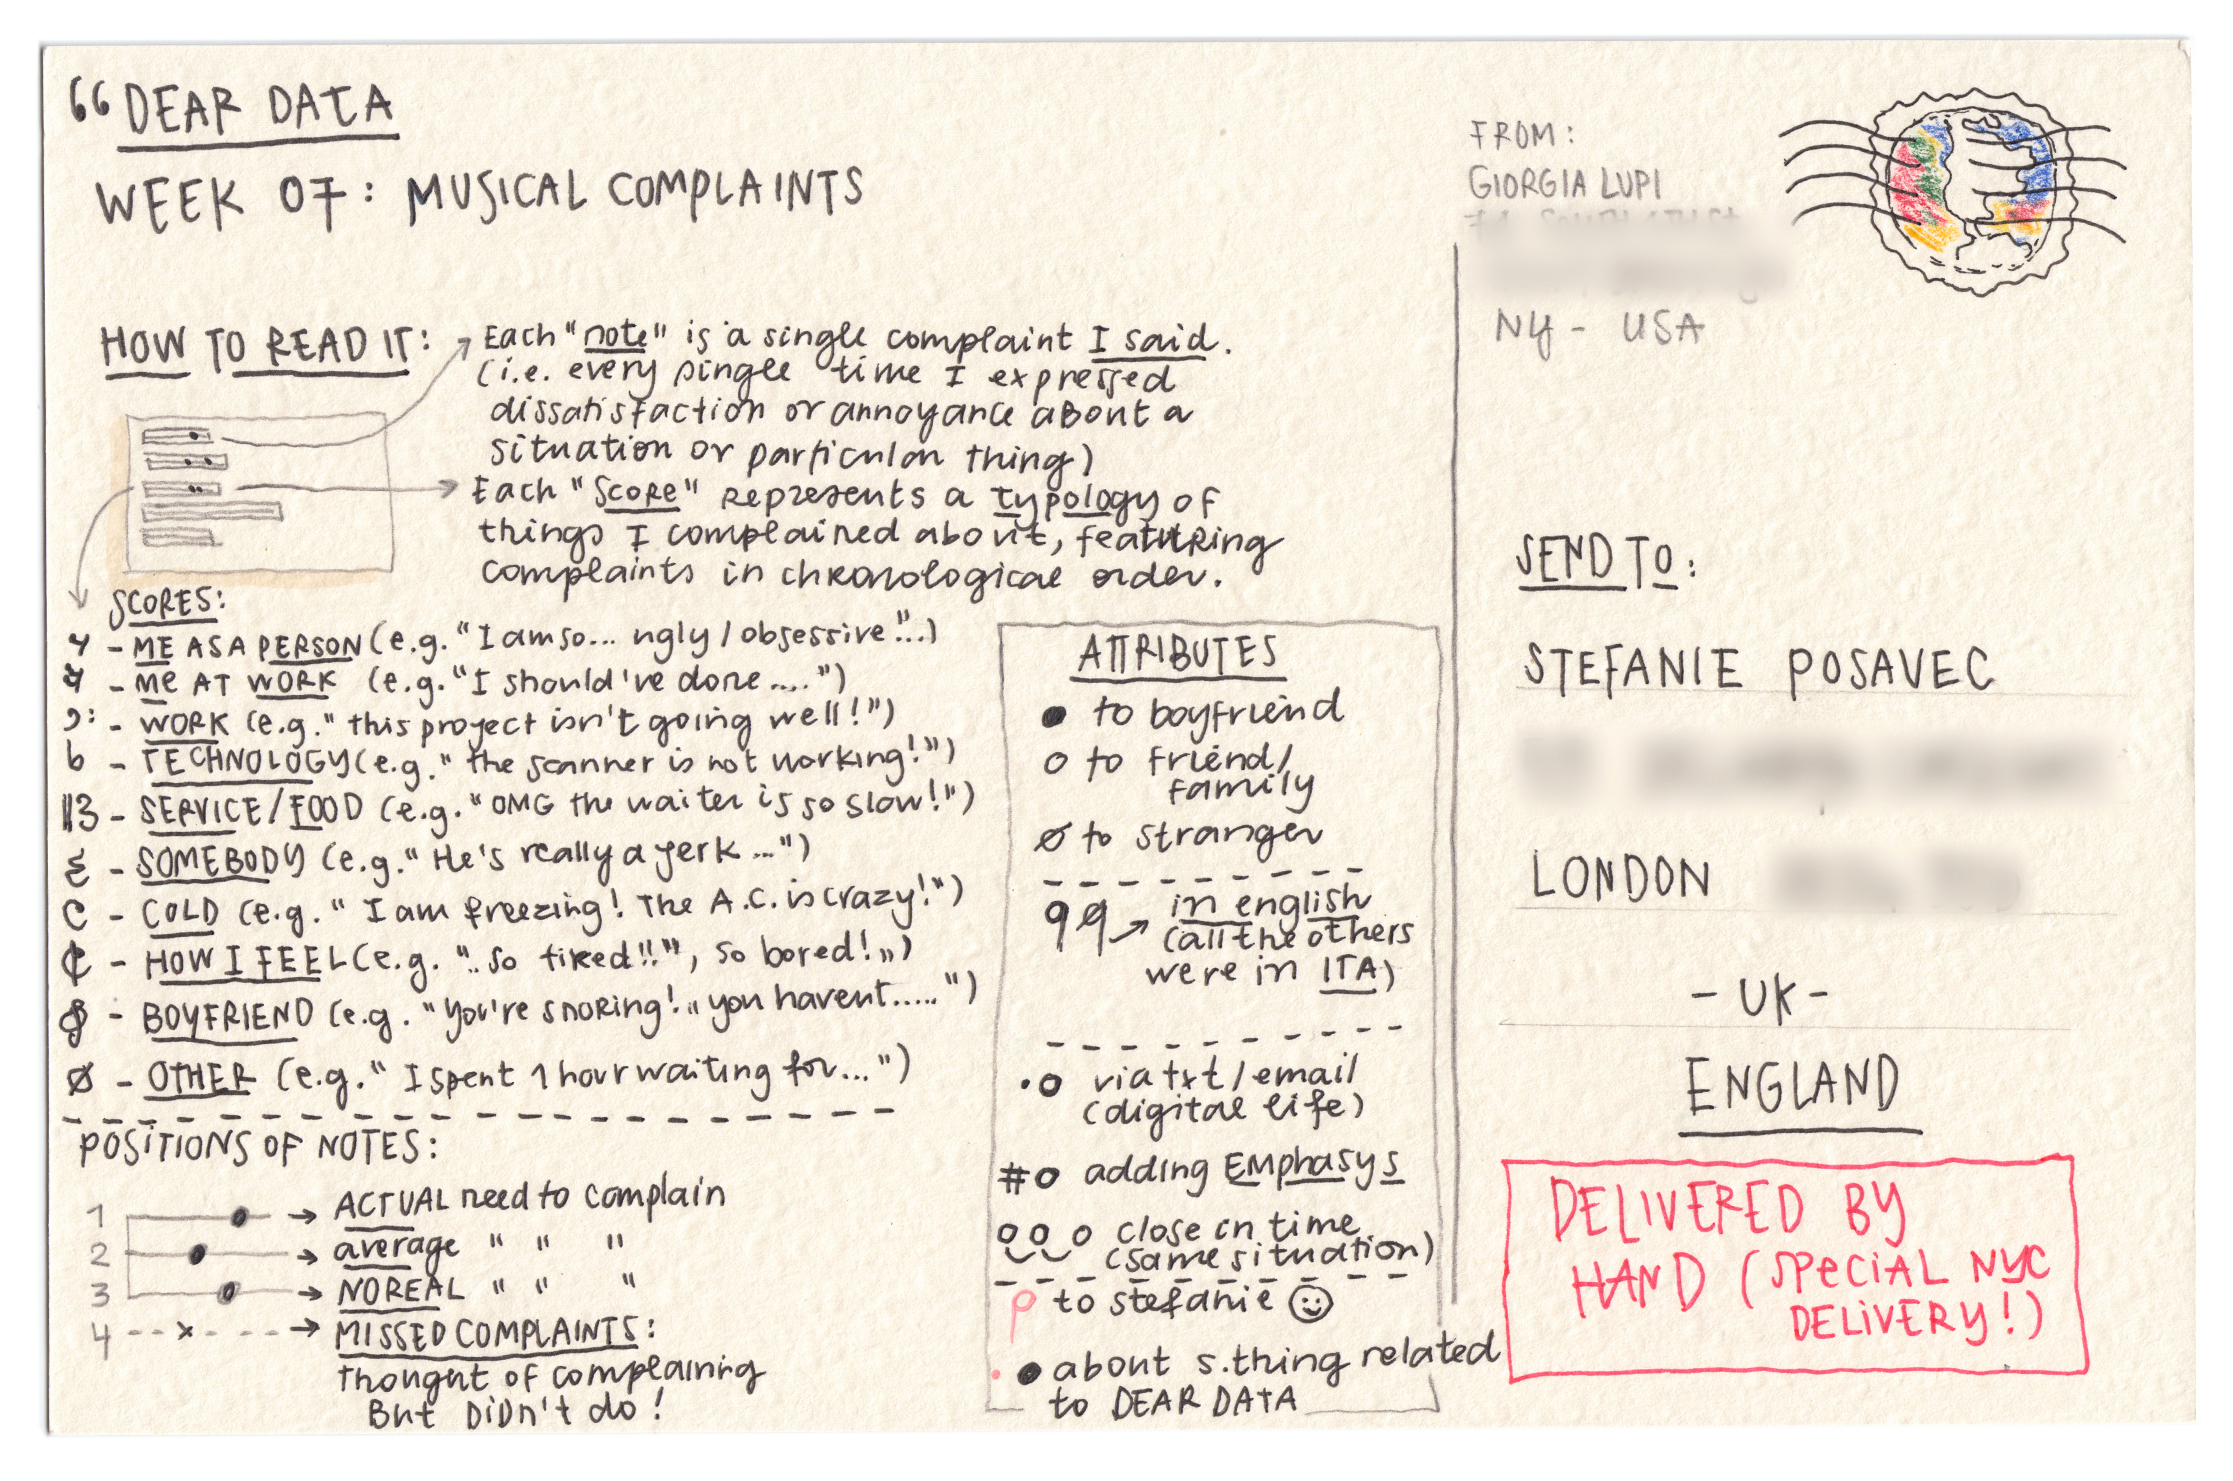 “DEAR DATA
WEEK 07: MUSICAL COMPLAINTS
HOW TO READ IT:
Each "note" is a single complaint I said.
(i.e. every single time I expressed
dissatisfaction or annoyance about a
situation or particular thing)
Each "score" represents a typology of
things I complained about, featuring
complaints in chronological order.
SCORES:
- ME AS A PERSON (e.g. "I am so... ugly / obsessive"...)
- ME AT WORK (e.g. "I should've done....")
- WORK (e.g. "this project isn't going well!")
- TECHNOLOGY (e.g. "the scanner is not working!")
- SERVICE/FOOD (e.g. "OMG the waiter is so slow!")
- SOMEBODY (e.g. "He's really a jerk...")
- COLD (e.g. "I am freezing! The A.C. is crazy!")
- HOW I FEEL (e.g. "..so tired!!", so bored!")
- BOYFRIEND (e.g. "You're snoring!" "you havent.....")
- OTHER (e.g. "I spent 1 hour waiting for...")
POSITIONS OF NOTES:
1 → ACTUAL need to complain
2 → average " " "
3 → NO REAL " " "
4 --x--- → MISSED COMPLAINTS:
thought of complaining
But DiDn't do!
ATTRIBUTES
● to boyfriend
○ to friend/
family
ø to stranger
in english
(all the others
were in ITA)
via txt / email
(digital life)
#o adding EMphasys
o o o close in time
(same situation)
to stefanie ☺
● about s.thing related
to DEAR DATA
FROM:
GIORGIA LUPI
NY - USA
SEND TO:
STEFANIE POSAVEC
LONDON
- UK -
ENGLAND
DELIVERED BY
HAND (SPECIAL NYC
DELIVERY!)